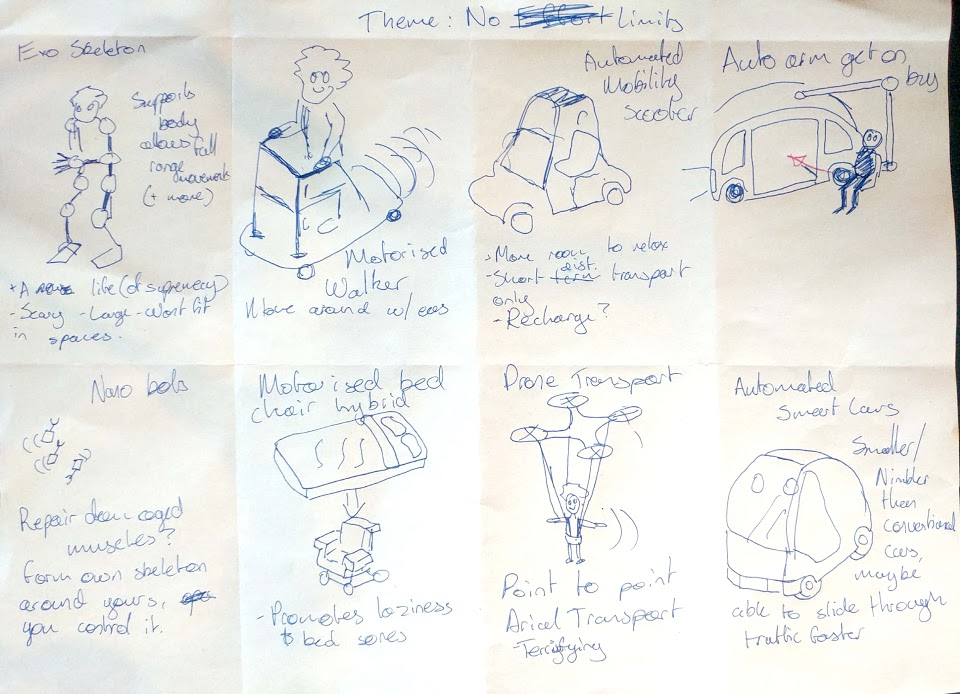 Theme: No Effort Limits
Exo Skeleton
Supports
body
allows full
range
movement
(+ more)
+ A life (of supremacy)
- Scary - Large - Wont fit
in spaces.
Motorised
Walker
Move around w/ ease
Automated
Mobility
Scooter
- More room to relax
- Short term dist. transport
only
- Recharge?
Auto arm get on
bus
Nano bots
Repair damaged
muscles?
Form own skeleton
around yours,
you control it.
Motorised bed
chair hybrid
- Promotes laziness
& bed sores
Drone Transport
Point to point
Arieal Transport
- Terrifying
Automated
Smart Cars
Smaller/
Nimbler
than
conventional
cars,
maybe
able to slide through
traffic faster